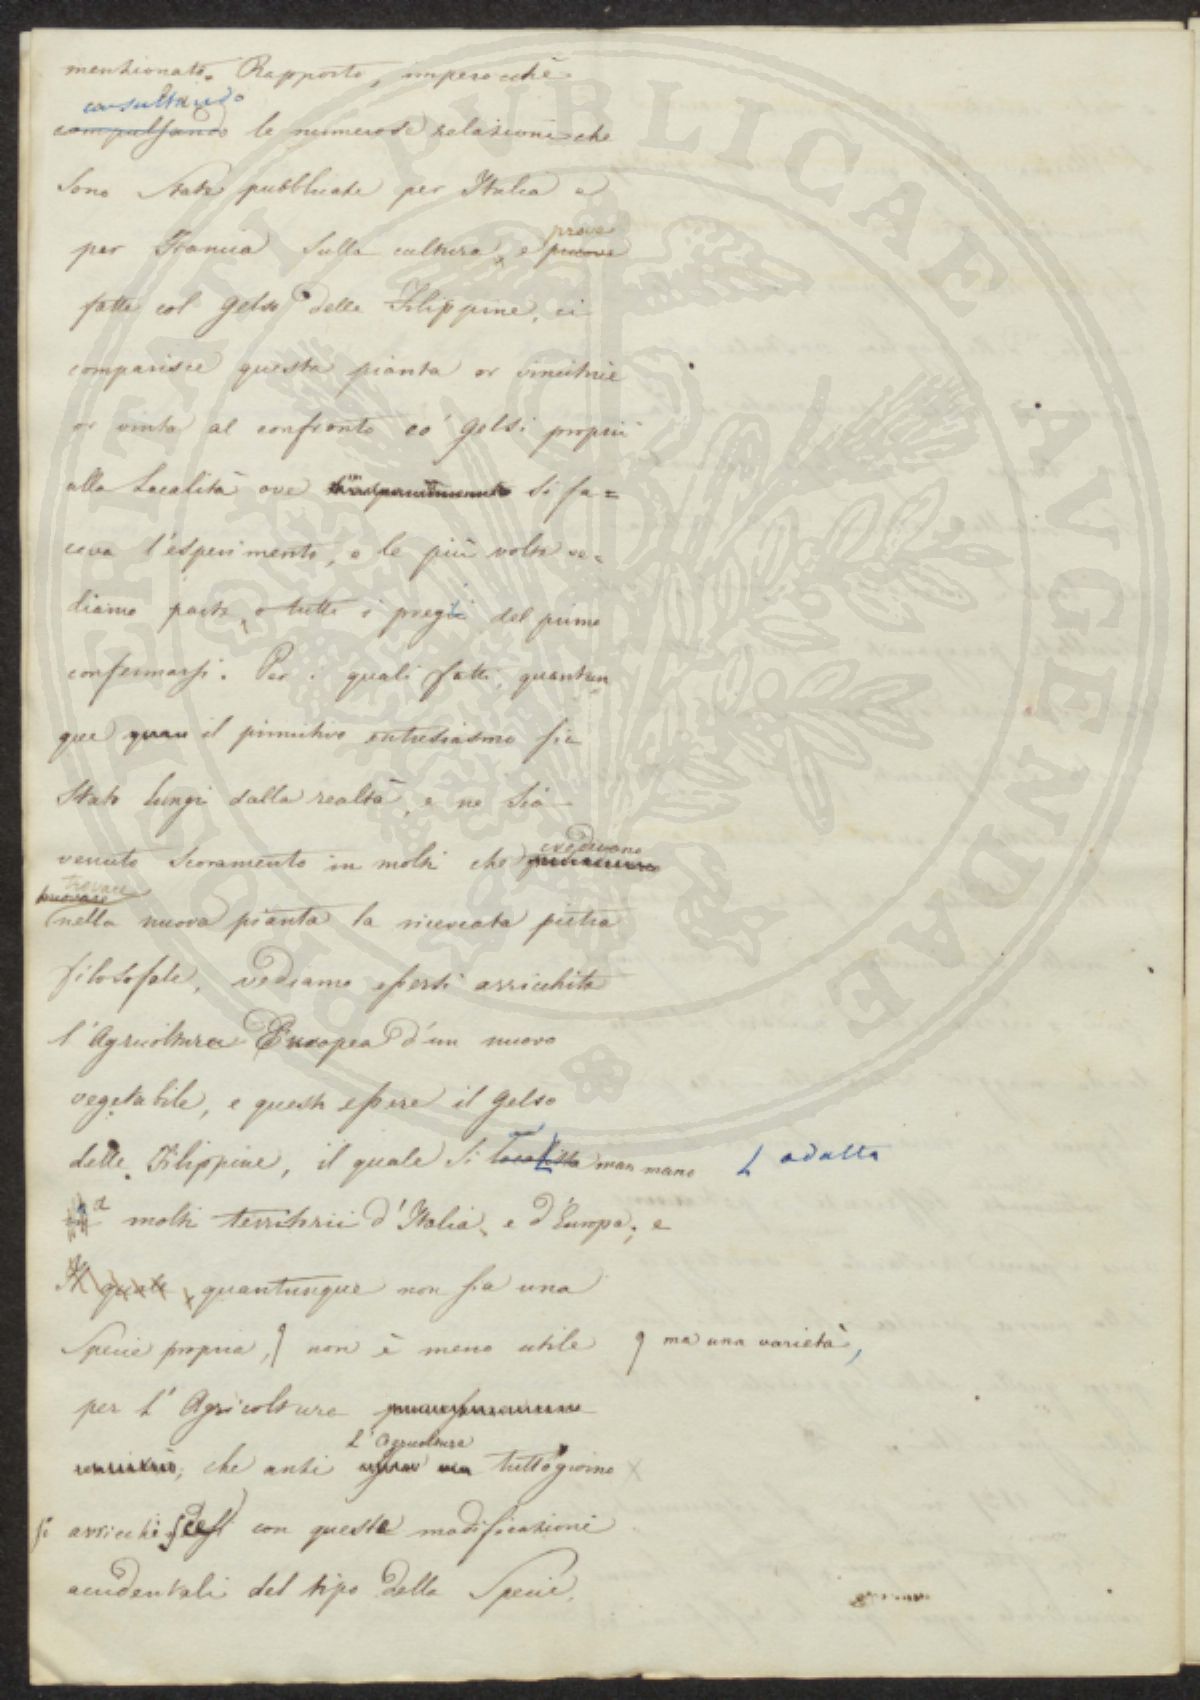 mentionato Rapporto, imperocchè
consultando
compulsando le numerose relazioni che
sono state pubblicate per Italia e
prove
per Francia sulla cultura, e pruove
fatte col Gelso delle Filippine, ci
comparisce questa pianta or vincitrice
or vinta al confronto co' Gelsi proprii
alla Località ove si fa=
ceva l'esperimento, e le più volte ve=
diamo parte, o tutti i pregi del primo
confermarsi. Per i quali fatti, quantun
que quan il primitivo entusiasmo sia
stato lungi dalla realtà, e ne sia
credevano
venuto scoramento in molti che
trovare
nella nuova pianta la ricercata pietra
filosofale, vediamo essersi arricchita
l'Agricoltura Europea d'un nuovo
vegetabile, e questi essere il Gelso
delle Filippine, il quale si man mano L adatta
a molti territorii d'Italia, e d'Europa; e
Il quale, quantunque non sia una
Specie propria, non è meno utile ma una varietà,
per l'Agricoltura
L'Agricoltura
che anzi tuttogiorno
si arricchisce con queste modificazioni
accidentali del tipo della Specie.
PIETATI PUBLICAE AUGENDAE